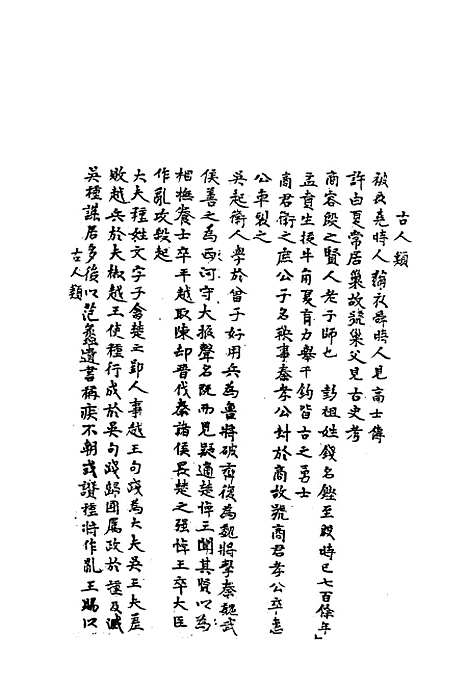 古人類
被衣堯時人蒲衣舜時人見高士傳
許由夏常居巢故號巢父見古史考
商容殷之賢人老子師也　彭祖姓錢名鏗至殷時已七百餘年
孟賁生拔牛角夏育力舉千鈞皆古之勇士
商君衛之庶公子名鞅事秦孝公封於商故號商君孝公卒
公車裂之
吳起衛人學於曾子好用兵為魯將破齊復為魏將擊秦魏武
侯善之為西河守大振聲名既而見疑適楚悼王聞其賢以為
相撫養士卒平越取陳却晉伐秦諸侯畏楚之强悼王卒大臣
作亂攻殺起
大夫種姓文字子禽楚之郢人事越王句踐為大夫吳王夫差
敗越兵於夫椒越王使種行成於吳句踐歸國屬政於種及滅
吳種謀居多後以范蠡遺書稱疾不朝或讒種將作亂王賜以
古人類